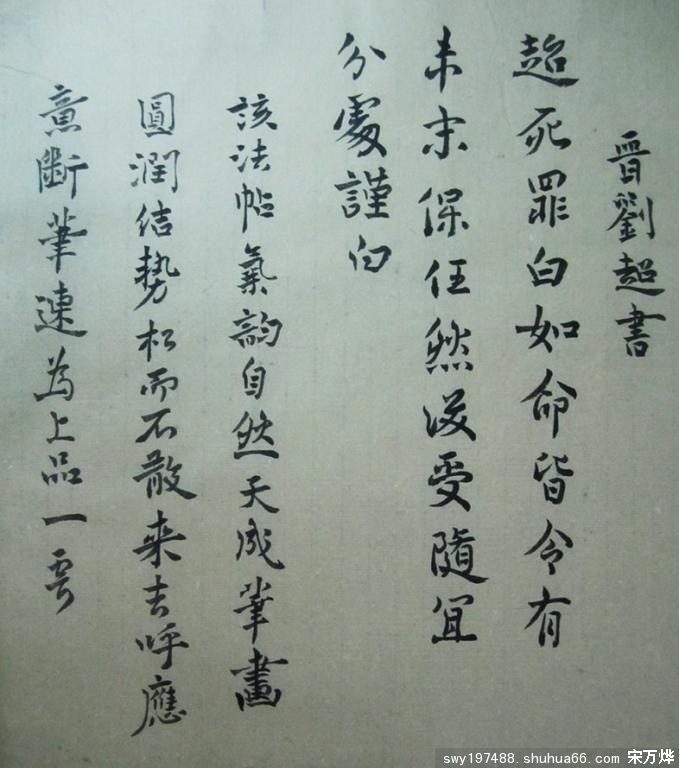 晋劉超書
超死罪白如命皆令有
未末保任然後受隨宜
分處謹白
該法帖氣韵自然天成筆畫
圓潤结勢松而不散来去呼應
意斷筆連為上品一
swy197488.shuhua66.com 宋万烨